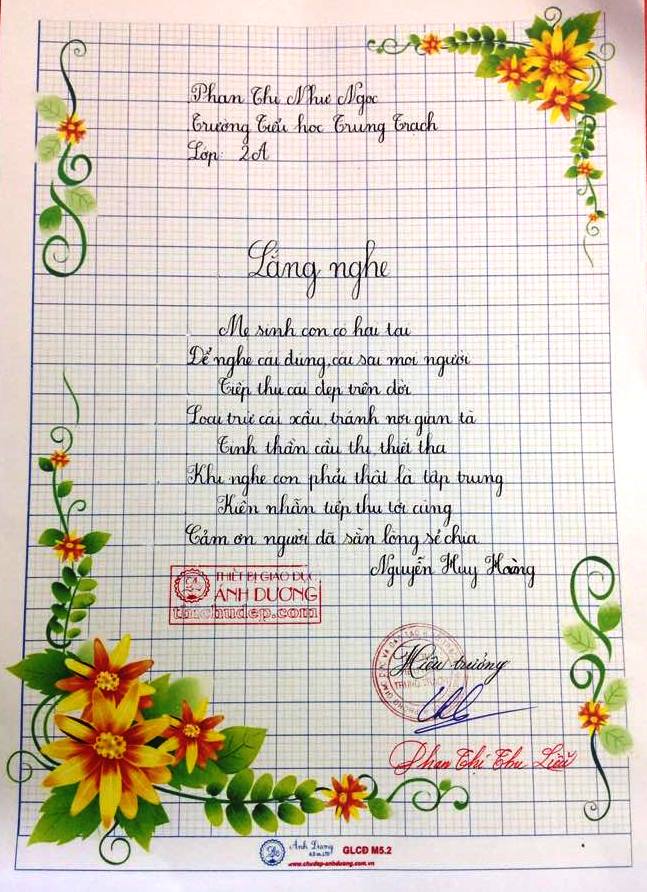 Phan Thị Như Ngọc
Trường Tiểu học Trung Trạch
Lớp: 2A
Lắng nghe
Mẹ sinh con có hai tai
Để nghe cái đúng, cái sai mọi người
Tiếp thu cái đẹp trên đời
Loại trừ cái xấu, tránh nơi gian tà
Tinh thần cầu thị, thiết tha
Khi nghe con phải thật là tập trung
Kiên nhẫn tiếp thu tới cùng
Cảm ơn người đã sẵn lòng sẻ chia
Nguyễn Huy Hoàng
THIẾT BỊ GIÁO DỤC
ÁNH DƯƠNG
thichudep.com
Hiệu trưởng
TRUNG TRẠCH
Phan Thị Thu Liễu
Ánh Dương
GLCD M5.2
www.chudep-anhduong.com.vn